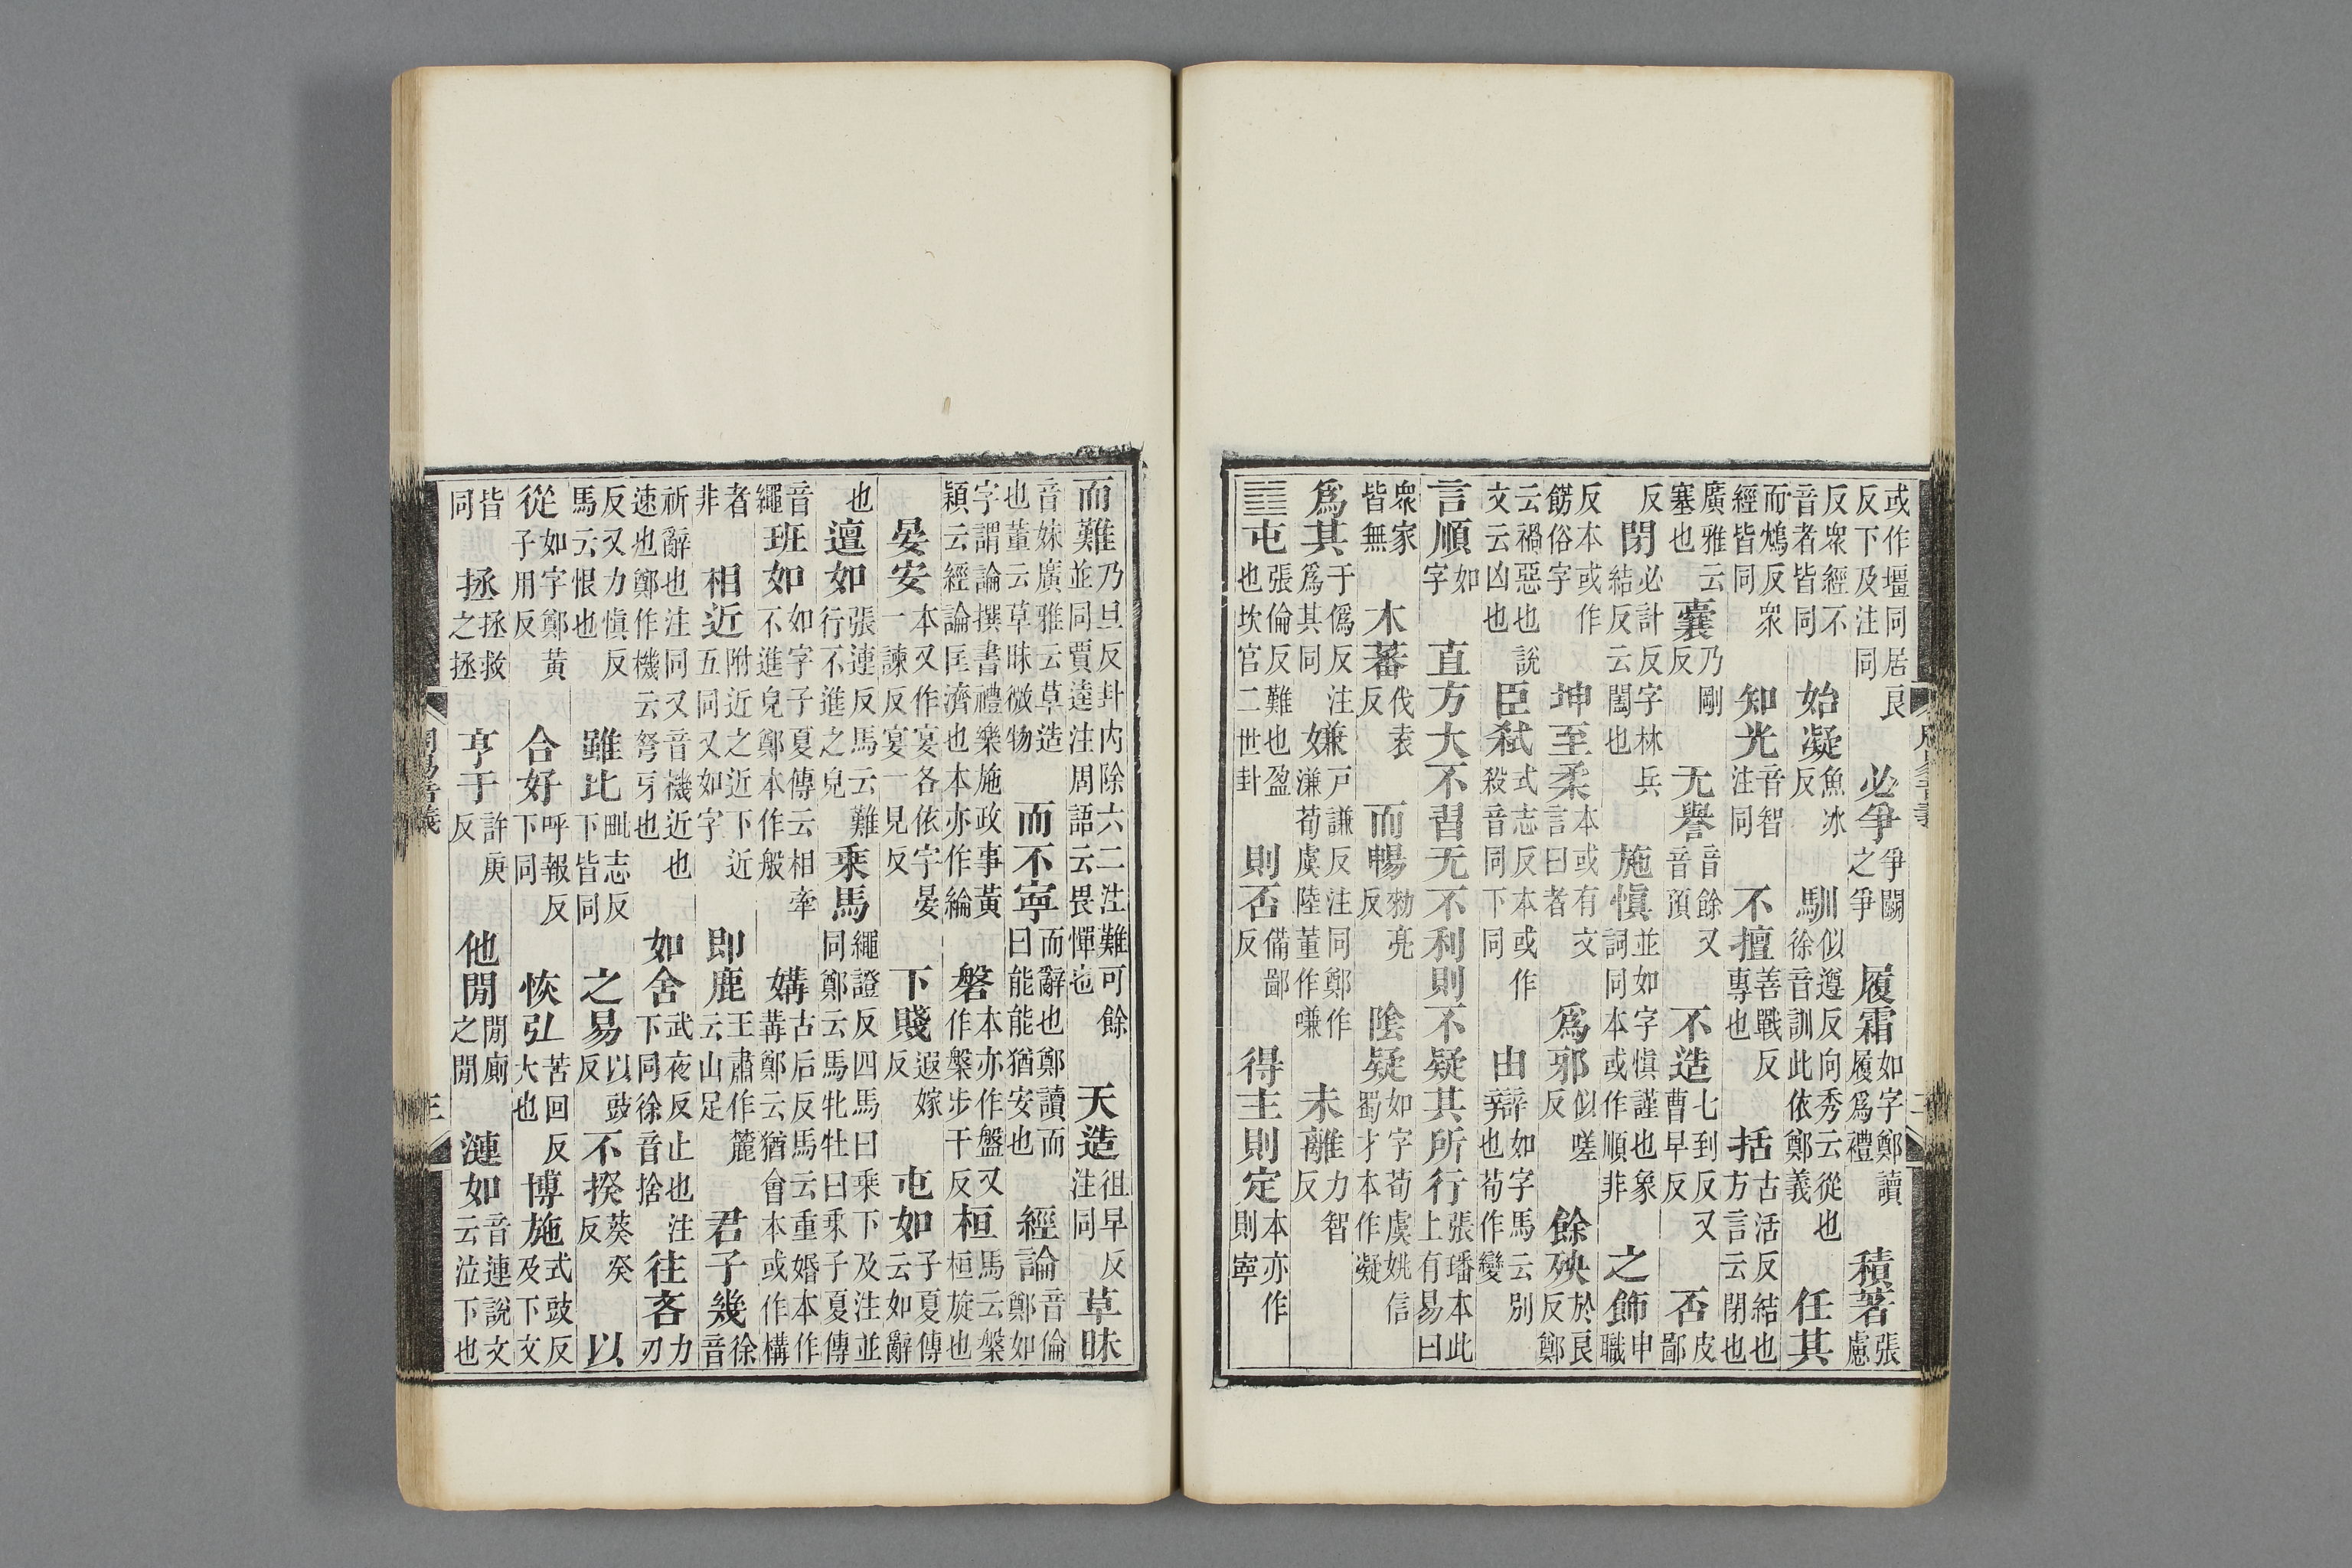 或作壃同居良反下及注同 必爭爭鬭之爭 履霜如字鄭讀履爲禮 積著張慮
反衆經不音者皆同 始凝魚冰反 馴似遵反向秀云從也徐音訓此依鄭義 任其
而鴆反衆經皆同 知光音智注同 不擅善戰反專也 括古活反結也方言云閉也
廣雅云塞也 囊乃剛反 无譽音餘又音預 不造七到反又曹早反 否皮鄙
反 閉必計反字林兵結反云闔也 施愼並如字愼謹也象詞同本或作順非 之飾申職
反本或作餝俗字 坤至柔本或有文言曰者 爲邪似嗟反 餘殃於良反鄭
云禍惡也說文云凶也 臣弒式志反本或作殺音同下同 由辯如字馬云別也荀作變
言順如字 直方大不習无不利則不疑其所行張璠本此上有易曰
衆家皆無 木蕃伐袁反 而暢勑亮反 陰疑如字荀虞姚信蜀才本作凝
爲其于僞反注爲其同 嫌戶謙反注同鄭作溓荀虞陸董作嗛 未離力智反
䷂ 屯張倫反難也盈也坎宮二世卦 則否備鄙反 得主則定本亦作則寧
周易音義 二
而難乃旦反卦內除六二注難可餘並同賈逵注周語云畏憚也 天造徂早反注同 草昧
音妹廣雅云草造也董云草昧微物 而不寧而辭也鄭讀而曰能能猶安也 經論音倫鄭如
字謂論撰書禮樂施政事黃穎云經論匡濟也本亦作綸 磐本亦作盤又作槃步干反 桓馬云槃桓旋也
晏安本又作宴各依字晏一諫反宴一見反 下賤遐嫁反 屯如子夏傳云如辭
也 邅如張連反馬云難行不進之皃 乘馬繩證反四馬曰乘下及注並同鄭云馬牝牡曰乘子夏傳
音繩 班如如字子夏傳云相牽不進皃鄭本作般 媾古后反馬云重婚本作冓鄭云猶會本或作構
者非 相近附近之近下近五同又如字 即鹿王肅作麓云山足 君子幾徐音
祈辭也注同又音機近也速也鄭作機云弩牙也 如舍武夜反止也注下同徐音捨 往吝力刃
反又力愼反馬云恨也 雖比毗志反下皆同 之易以豉反 不揆葵癸反 以
從如字鄭黃子用反 合好呼報反下同 恢弘苦回反大也 博施式豉反及下文
皆同 拯拯救之拯 亨于許庚反 他閒閒廁之閒 漣如音連說文云泣下也
周易音義 三